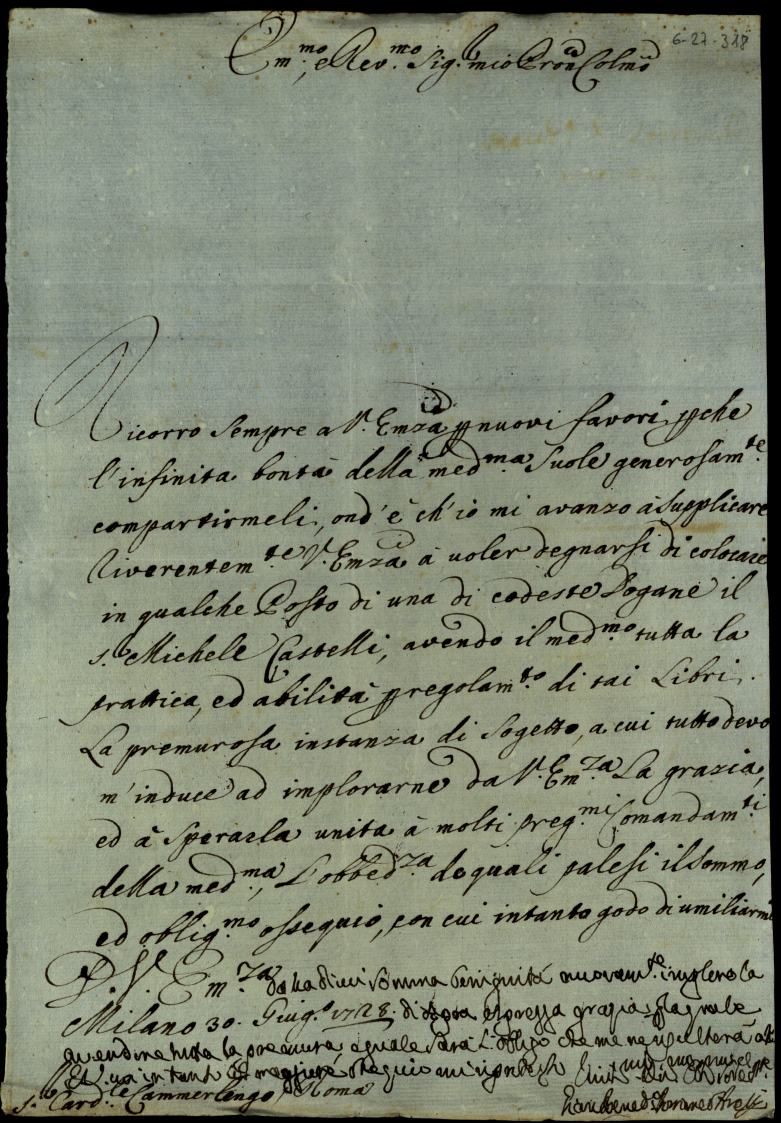 6-27-318
Em.mo, e Rev.mo Sig.r mio Pron Colmo
Ricorro sempre a V. Emza p nuovi favori, pche
l'infinita bontà della med.ma suole generosam.te
compartirmeli, ond'è ch'io mi avanzo à supplicare
riverentem.te V. Emza à voler degnarsi di colocare
in qualche Posto di una di codeste Dogane il
S.r Michele Castelli, avendo il med.mo tutta la
prattica, ed abilità p regolam.to di tai Libri.
La premurosa instanza di Sogetto, a cui tutto devo
m'induce ad implorarne da V. Em.za La grazia,
ed à sperarla unita à molti preg.mi Comandam.ti
della med.ma, L'obbed.za de quali palesi il sommo,
ed oblig.mo ossequio, con cui intanto godo di umiliarmi
D. V. Em.za dalla di cui somma benignità nuovam.te imploro la
Milano 30. Giug.o 1728. di sopra espressa grazia, p la quale
avendone tutta la premura, eguale sarà l'obligo che me ne
Et in tant
S.r Card.le Cammerlengo Roma